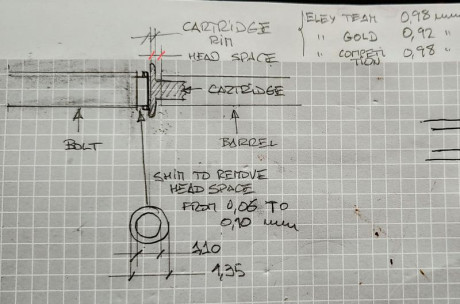 CARTRIDGE
RIM
HEAD SPACE
ELEY TEAM 0,98 mm
" GOLD 0,92 "
" COMPETI 0,98 "
TION
CARTRIDGE
BOLT
BARREL
SHIM TO REMOVE
HEAD SPACE
FROM 0,05 TO
0,10 mm